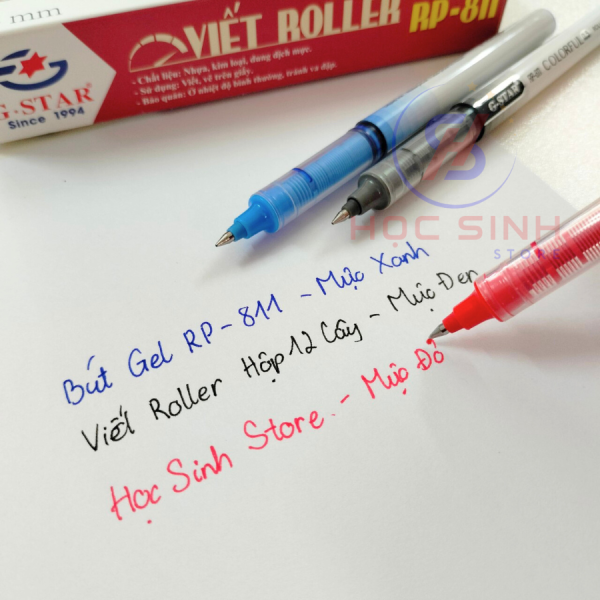 mm
G·STAR
Since 1994
VIẾT ROLLER RP-811
- Chất liệu: Nhựa, kim loại, dung dịch mực.
- Sử dụng: Viết, vẽ trên giấy.
- Bảo quản: Ở nhiệt độ bình thường, tránh va đập.
G·STAR
COLORFLEX
HỌC SINH
STORE
Bút Gel RP-811 - Mực Xanh
Viết Roller Hộp 12 Cây - Mực Đen
Học Sinh Store. - Mực Đỏ